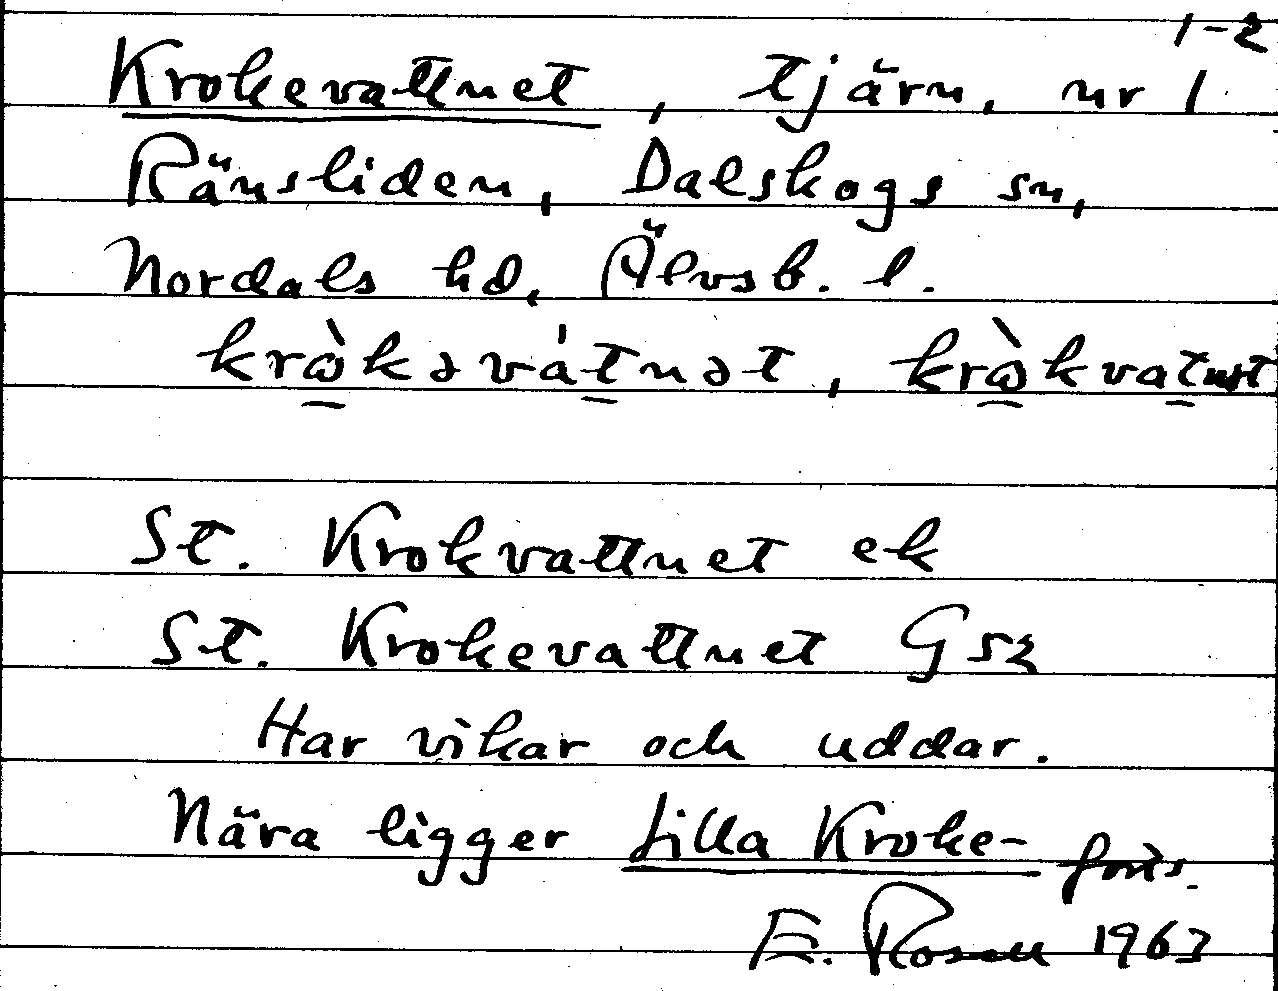 1-2
Krokevattnet, tjärn, nr 1
Ränsliden, Dalskogs sn,
Nordals hd, Älvsb. l.
krὰkəvátnət, krὰkvatnət
St. Krokvattnet ek
St. Krokevattnet Gsz
Har vikar och uddar.
Nära ligger Lilla Kroke- forts.
E. Rosell 1963